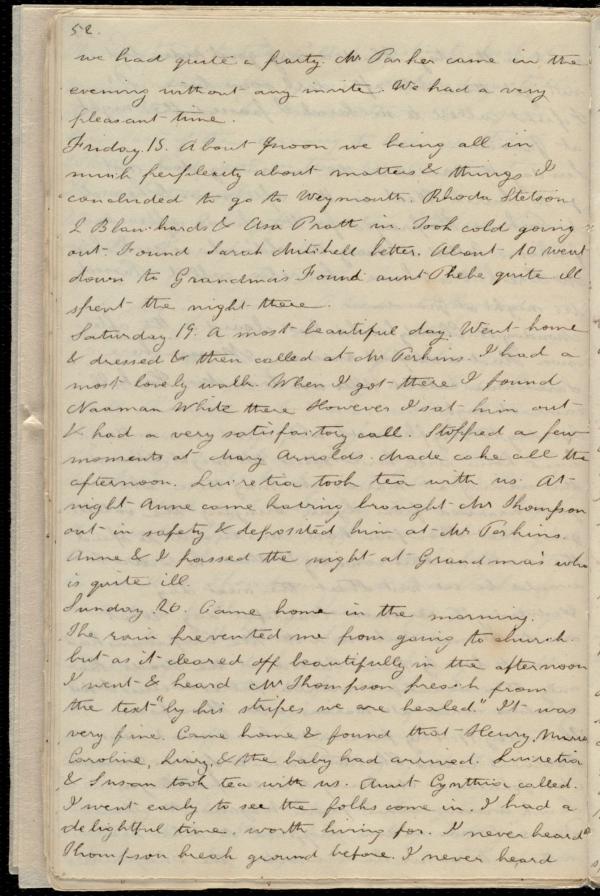 52.
we had quite a party. Mr Parker came in the
evening without any invite. We had a very
pleasant time.
Friday. 18. About noon we being all in
much perplexity about matters & things I
concluded to go to Weymouth. Rhoda Stetson
I Blanchards & Asa Pratt in. Took cold going
out. Found Sarah Mitchell better. About 10 went
down to Grandma's Found aunt Phebe quite ill
spent the night there.
Saturday. 19. A most beautiful day. Went home
& dressed & then called at Mr Perkins. I had a
most lovely walk. When I got there I found
Naaman White there However I sat him out
& had a very satisfactory call. Stopped a few
moments at Mary Arnolds. Made cake all the
afternoon. Lucretia took tea with us. At
night Anne came having brought Mr Thompson
out in safety & deposited him at Mr Perkins.
Anne & I passed the night at Grandma's who
is quite ill.
Sunday. 20. Came home in the morning.
The rain prevented me from going to church.
but as it cleared off beautifully in the afternoon
I went & heard Mr Thompson preach from
the text "by his stripes we are healed." It was
very fine. Came home & found that Henry, Maria
Caroline, Lizzy, & the baby had arrived. Lucretia
& Susan took tea with us. Aunt Cynthia called.
I went early to see the folks come in. I had a
delightful time, worth living for. I never heard
Thompson break ground before. I never heard